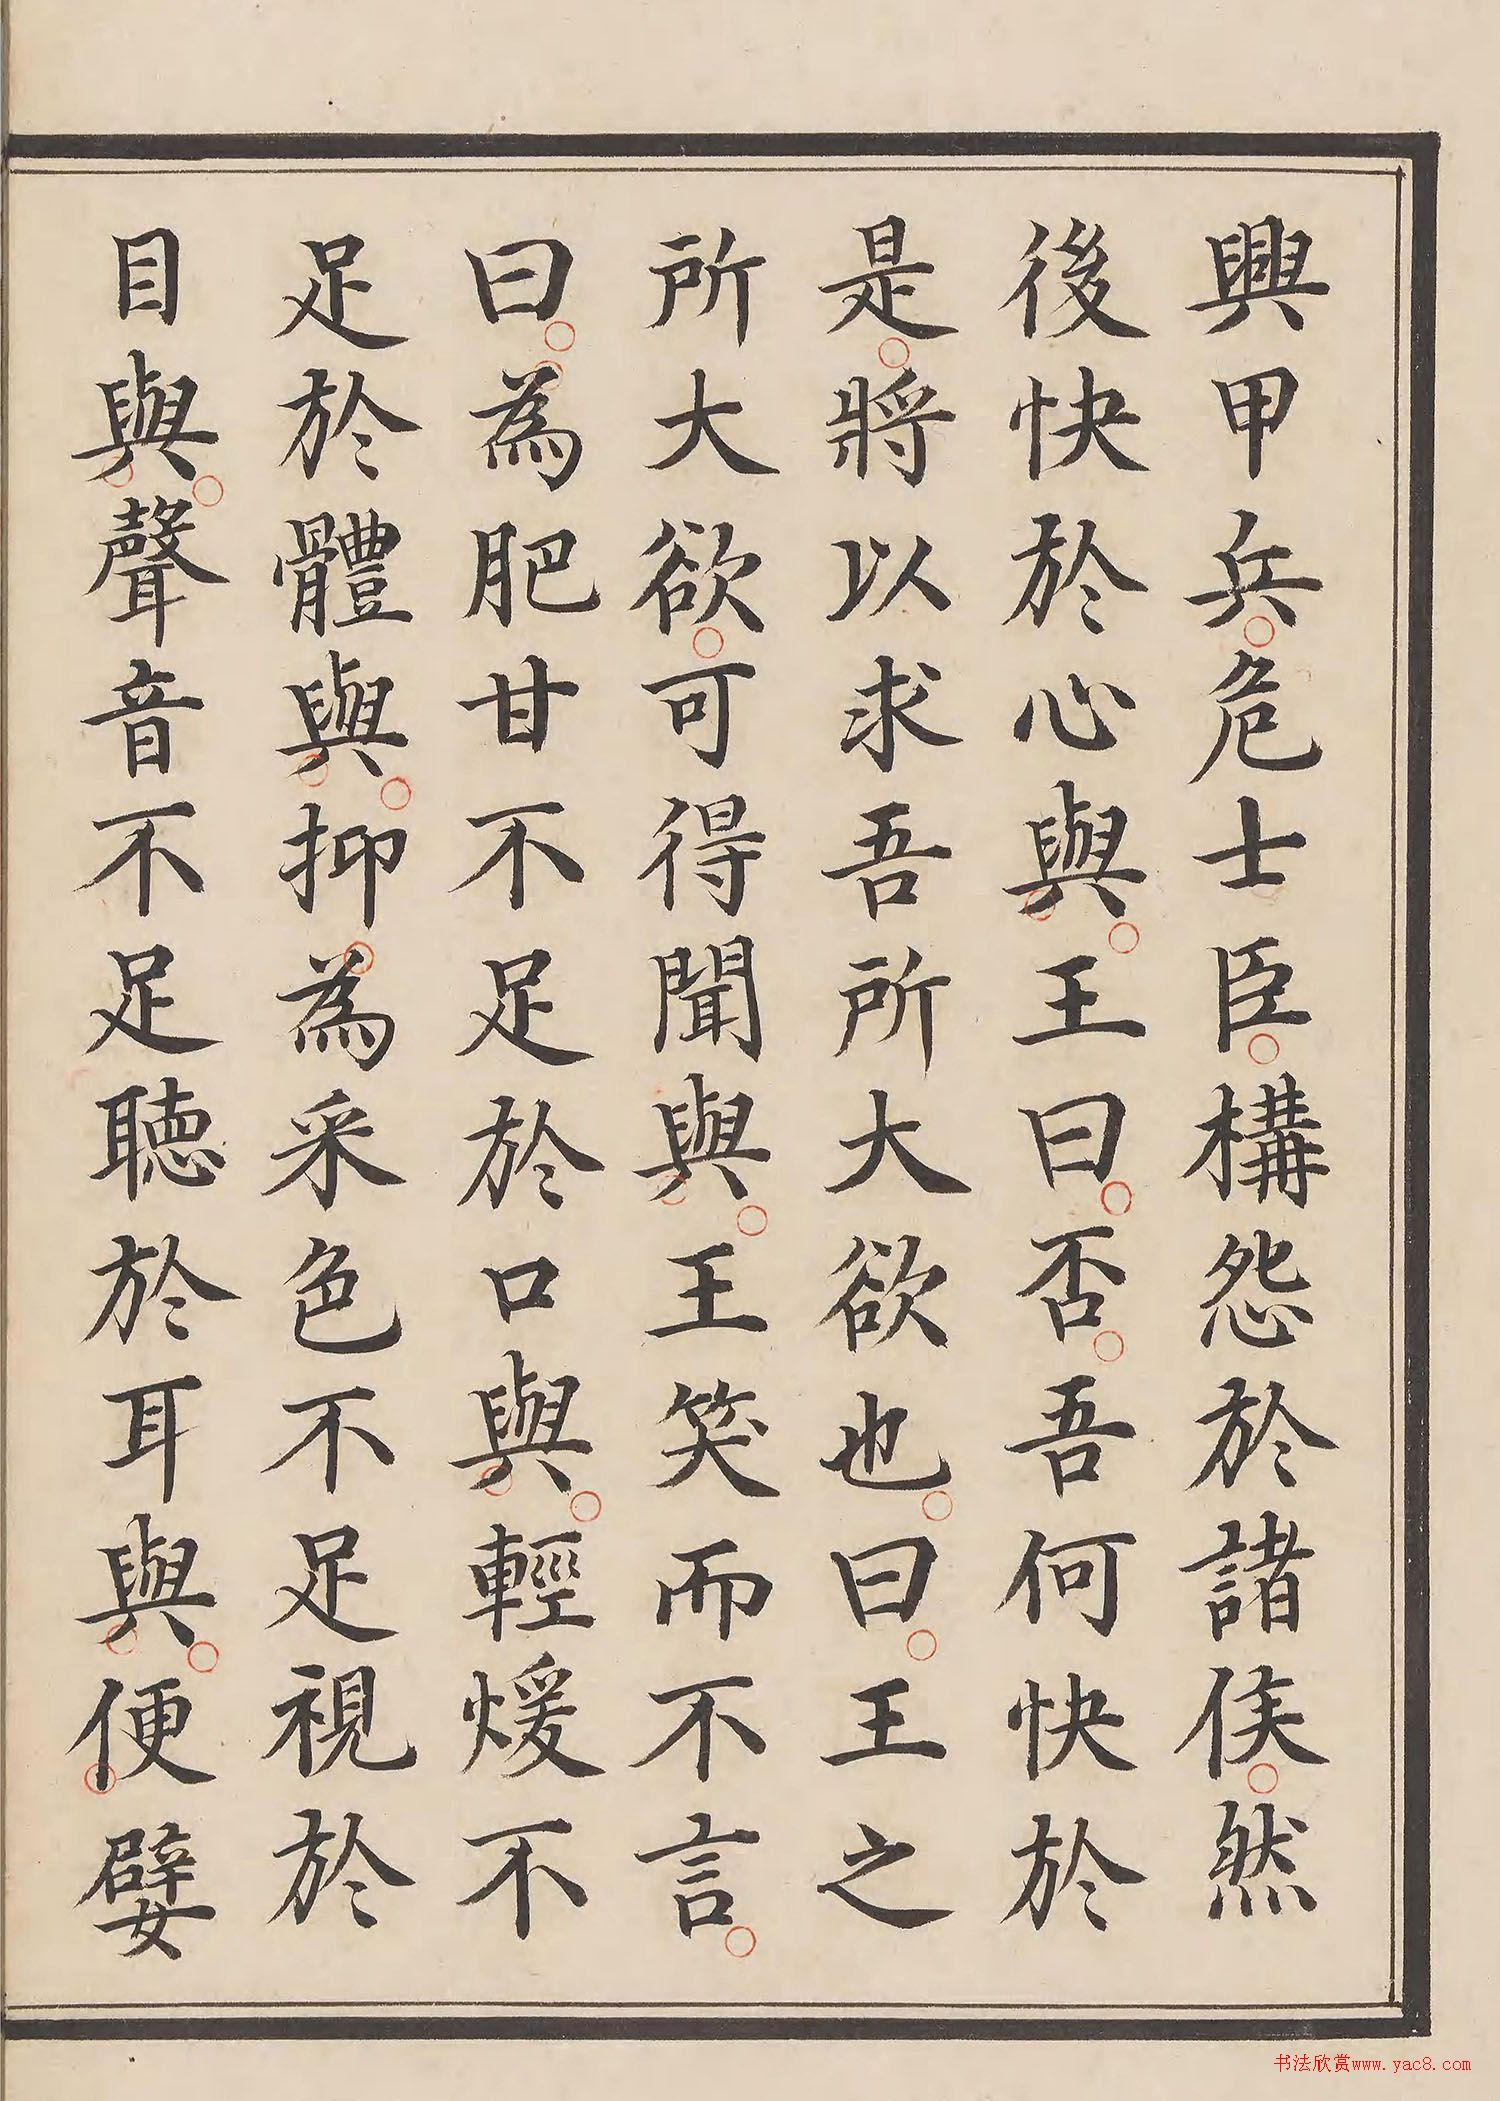 興甲兵○危士臣○構怨於諸侯○然
後快於心與○王曰○否○吾何快於
是○將以求吾所大欲也○曰○王之
所大欲○可得聞與○王笑而不言○
曰○為肥甘不足於口與○輕煖不
足於體與○抑為采色不足視於
目與○聲音不足聽於耳與○便嬖
书法欣赏www.yac8.com